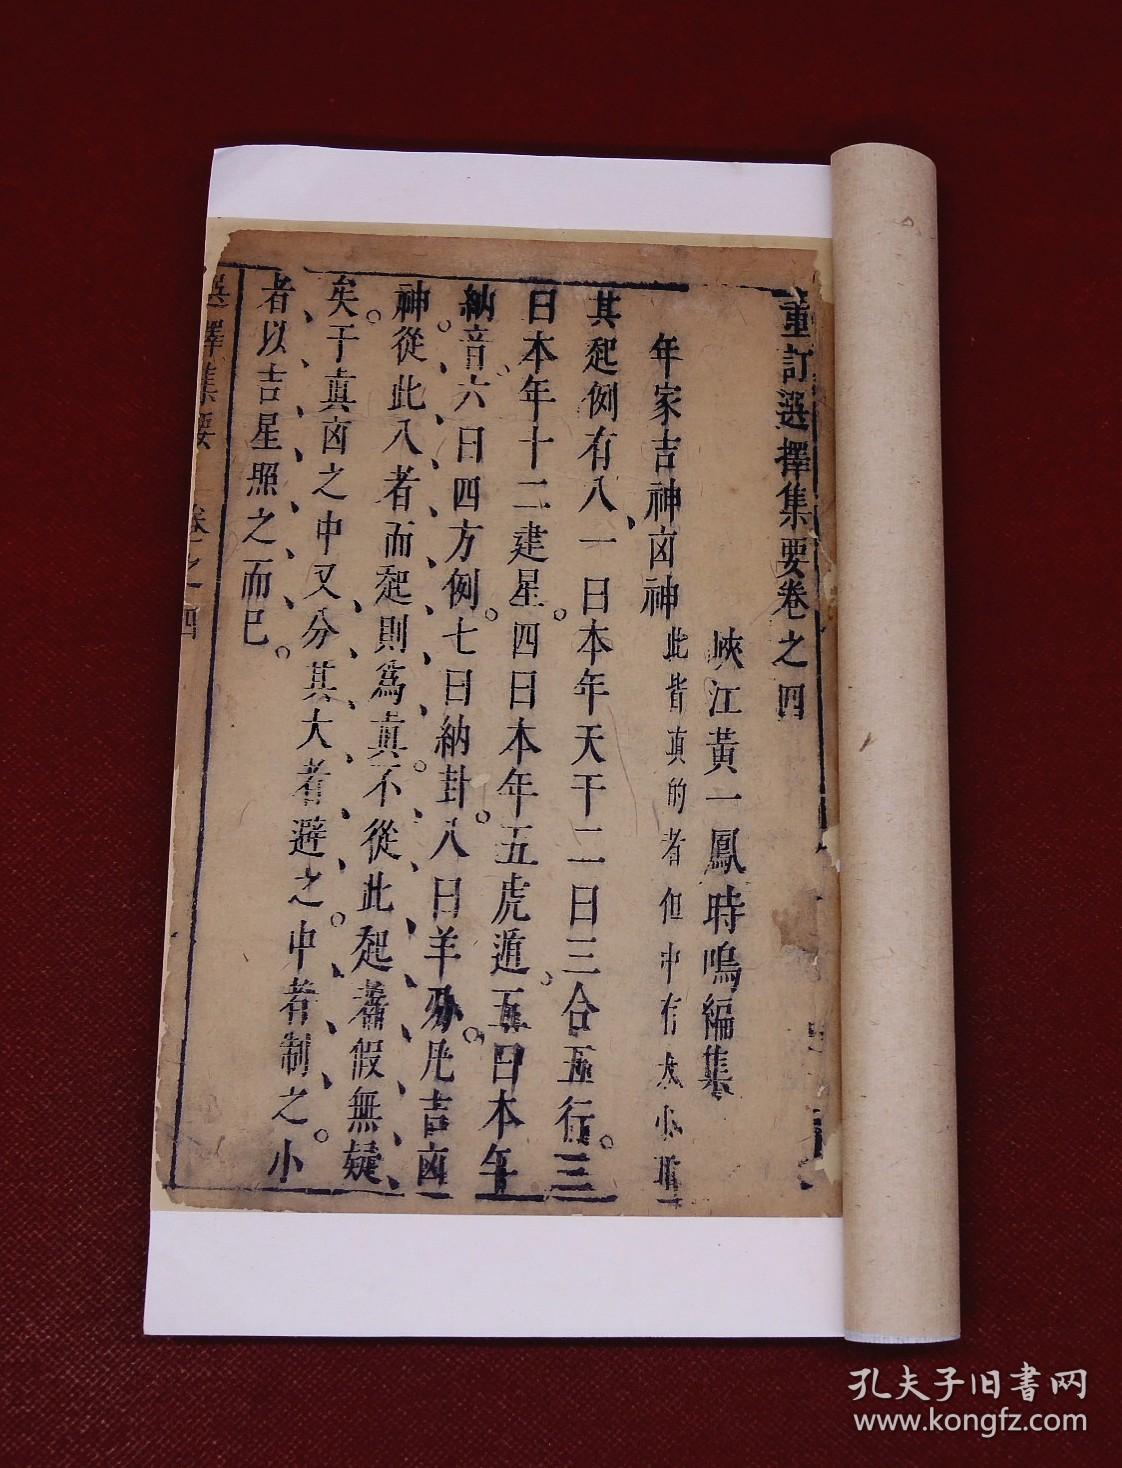 重訂選擇集要卷之四
峽江黃一鳳時鳴編集
年家吉神凶神此皆真的者但中有大小耳
其起例有八一曰本年天干二曰三合五行。三
曰本年十二建星。四曰本年五虎遁。五曰本年
納音六曰四方例。七曰納卦。八曰羊刃。凡吉凶
神從此八者而起則爲真。不從此起者假無疑
矣。于真凶之中又分其大者避之。中者制之。小
者以吉星照之而已。
選擇集要 卷之四
孔夫子旧書网
www.kongfz.com